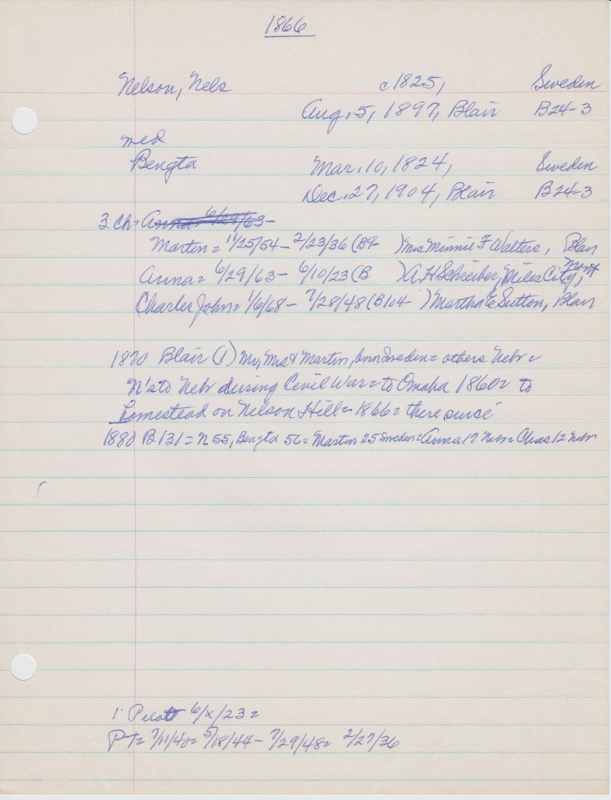 1866
Nelson, Nels c1825, Sweden
Aug. 5, 1897, Blair B24-3
med
Bengta Mar. 10, 1824, Sweden
Dec. 27, 1904, Blair B24-3
3 ch = Anna = 6/29/63 -
Martin = 11/25/54 - 2/23/36 (B9- ) Mrs Minnie F Walters, Blair
Anna = 6/29/63 - 6/10/23 (B ) A.H. Schreiber, Miles City, Mont
Charles John = 1/6/68 - 7/28/48 (B104- ) Martha E Sutton, Blair
1870 Blair (1) Mr, Mrs & Martin, born Sweden = others Nebr =
N's to Nebr during Civil War = to Omaha 1860 = to
homestead on Nelson Hill = 1866 = there since
1880 B131 = N 55, Bengta 56 = Martin 25 Sweden = Anna 17 Nebr = Chas 12 Nebr
1' Pilot 6/x/23 =
PT = 7/11/40 = 5/18/44 - 7/29/48 = 2/27/36